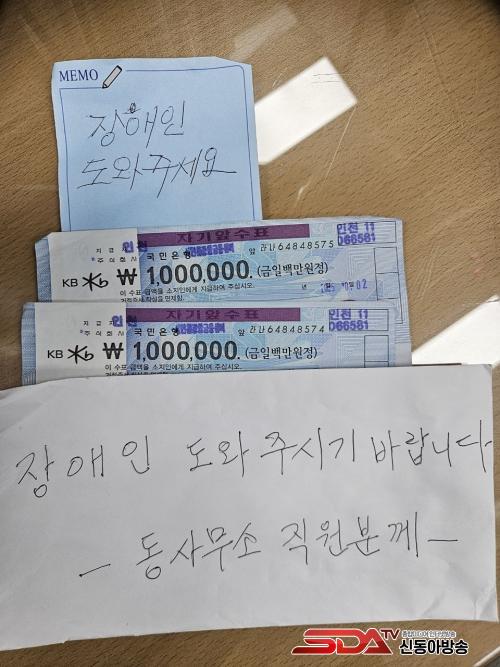 MEMO
장애인
도와주세요
자기앞수표
인천
인천 11
066561
주식회사 국민은행
앞 라나 64848575
KB ₩ 1,000,000. (금일백만원정)
이 수표 금액을 소지인에게 지급하여 주십시오.
거절증서 작성을 면제함.
년
자기앞수표
인천
인천 11
066561
주식회사 국민은행
앞 라나 64848574
KB ₩ 1,000,000. (금일백만원정)
이 수표 금액을 소지인에게 지급하여 주십시오.
장애인 도와주시기 바랍니다
- 동사무소 직원분께 -
SDATV
신동아방송